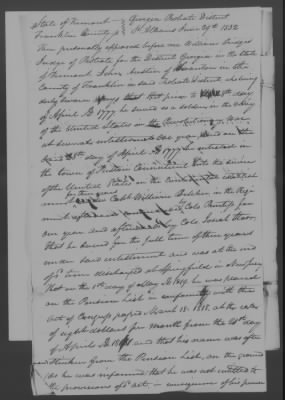 State of Vermont Georgia Probate District
Franklin County ss St Albans June 29th 1832
Then personally appeared before me William Bridges
Judge of Probate for the District Georgia in the State
of Vermont John Austin of in the
County of Franklin in said Probate District who being
duly sworn says that prior to the 28th day
of April AD 1777 he served as a soldier in the Army
of the United States in the Revolutionary War
at several enlistments one year and on the
said 28th day of April AD 1777 he enlisted in
the town of Preston Connecticut into the service
of the United States on the Continental establish
ment for three years under Capt William Belcher in the Regi
ment of by Cole for
one year and by Cole Josiah Starr
that he served for the full term of three years
under said enlistment and was at the end
of sd term discharged at Springfield in New Jersey
that on the day of May AD 1819 he was placed
on the Pension List in conformity with the
act of Congress passed March 18. 1818 at the rate
of eight dollars per month from the day
of April AD 1818 and that his name was after
wards stricken from the Pension List, on the ground
as he was informed that he was not entitled to
the provisions of sd act in consequence of his